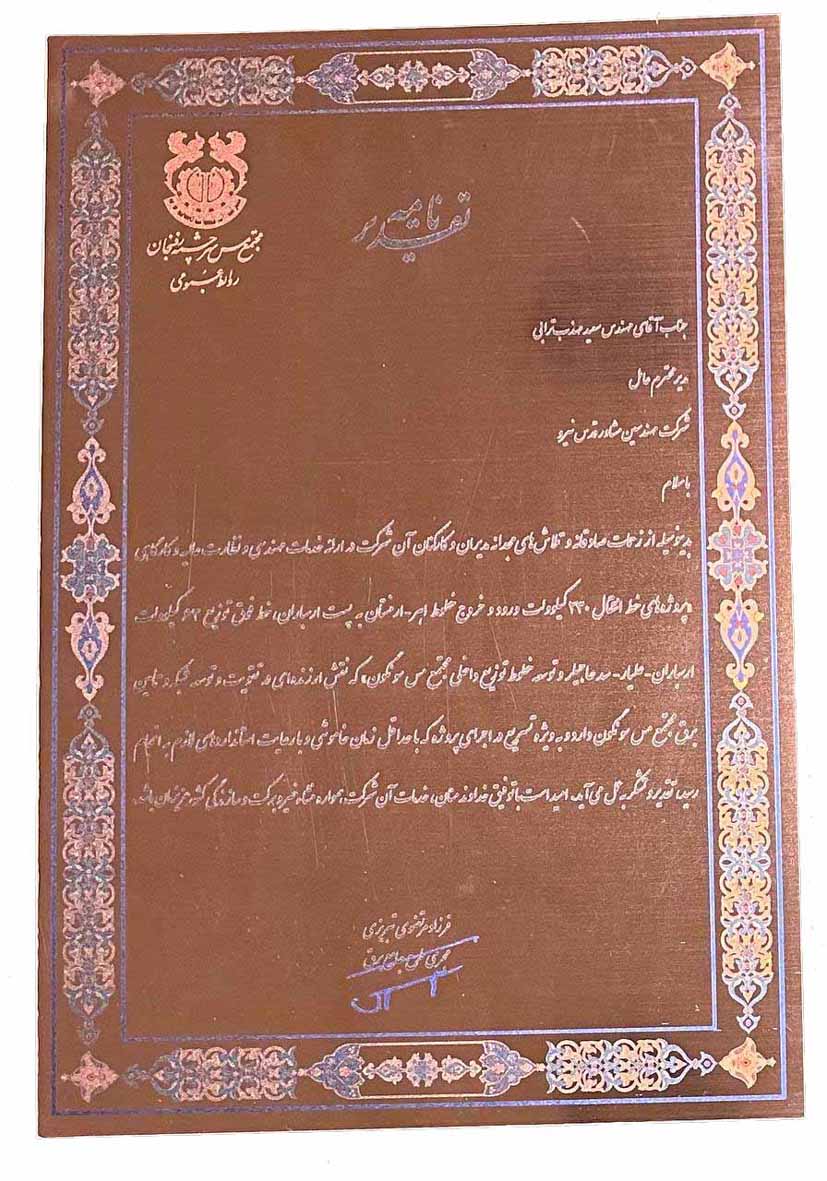 تقدیر نامه
مجتمع مس سرچشمه رفسنجان
روابط عمومی
جناب آقای مهندس سعید مهذب ترابی
مدیر محترم عامل
شرکت مهندسین مشاور قدس نیرو
با سلام
بدینوسیله از زحمات صادقانه و تلاش های مجدانه مدیران و کارکنان آن شرکت در ارائه خدمات مهندسی و نظارت عالیه و کارگاهی
پروژه های خط انتقال ۲۳۰ کیلوولت ورود و خروج خطوط اهر-ارمنستان به پست ارسباران، خط فوق توزیع ۶۳ کیلوولت
ارسباران-علیار-سد حاجیلر و توسعه خطوط توزیع داخلی مجتمع مس سونگون، که نقش ارزنده ای در تقویت و توسعه شبکه و تامین
برق مجتمع مس سونگون دارد و به ویژه تسریع در اجرای پروژه که با حداقل زمان خاموشی و با رعایت استانداردهای لازم به انجام
رسید، تقدیر و تشکر به عمل می آید. امید است با توفیق خداوند منان، خدمات آن شرکت همواره منشاء خیر و برکت و سازندگی کشور عزیزمان باشد.
فرزاد مرتضوی تبریزی
مجری طرح جامع برق